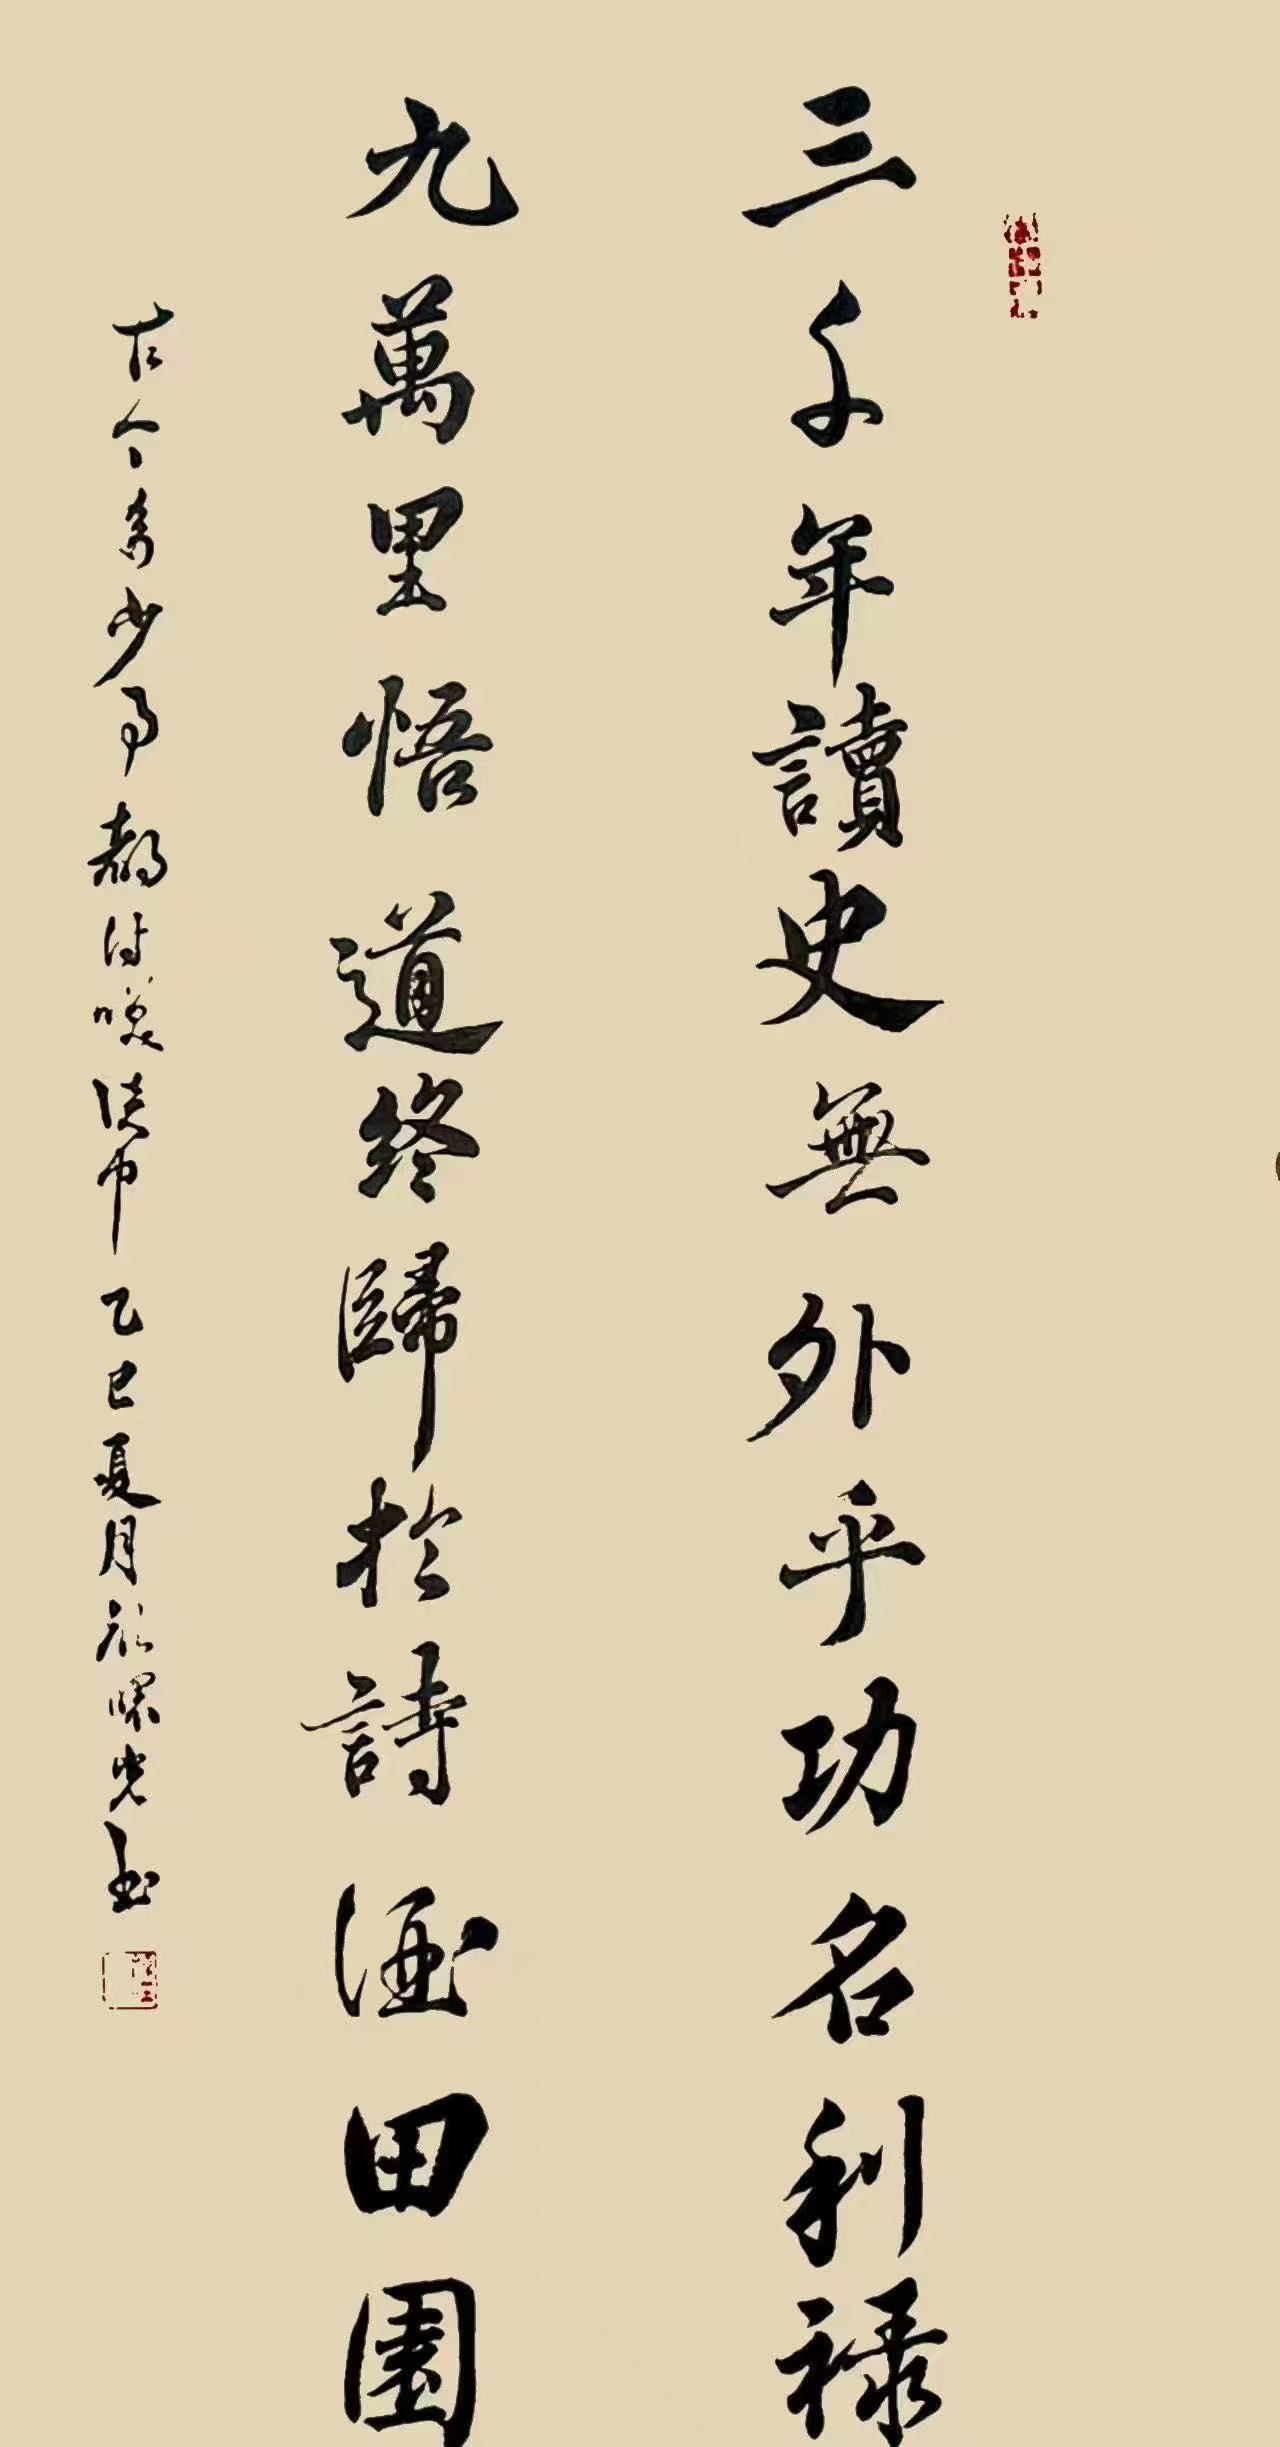 三千年讀史無外乎功名利祿
九萬里悟道終歸於詩酒田園
古今多少事都付笑談中乙巳夏月